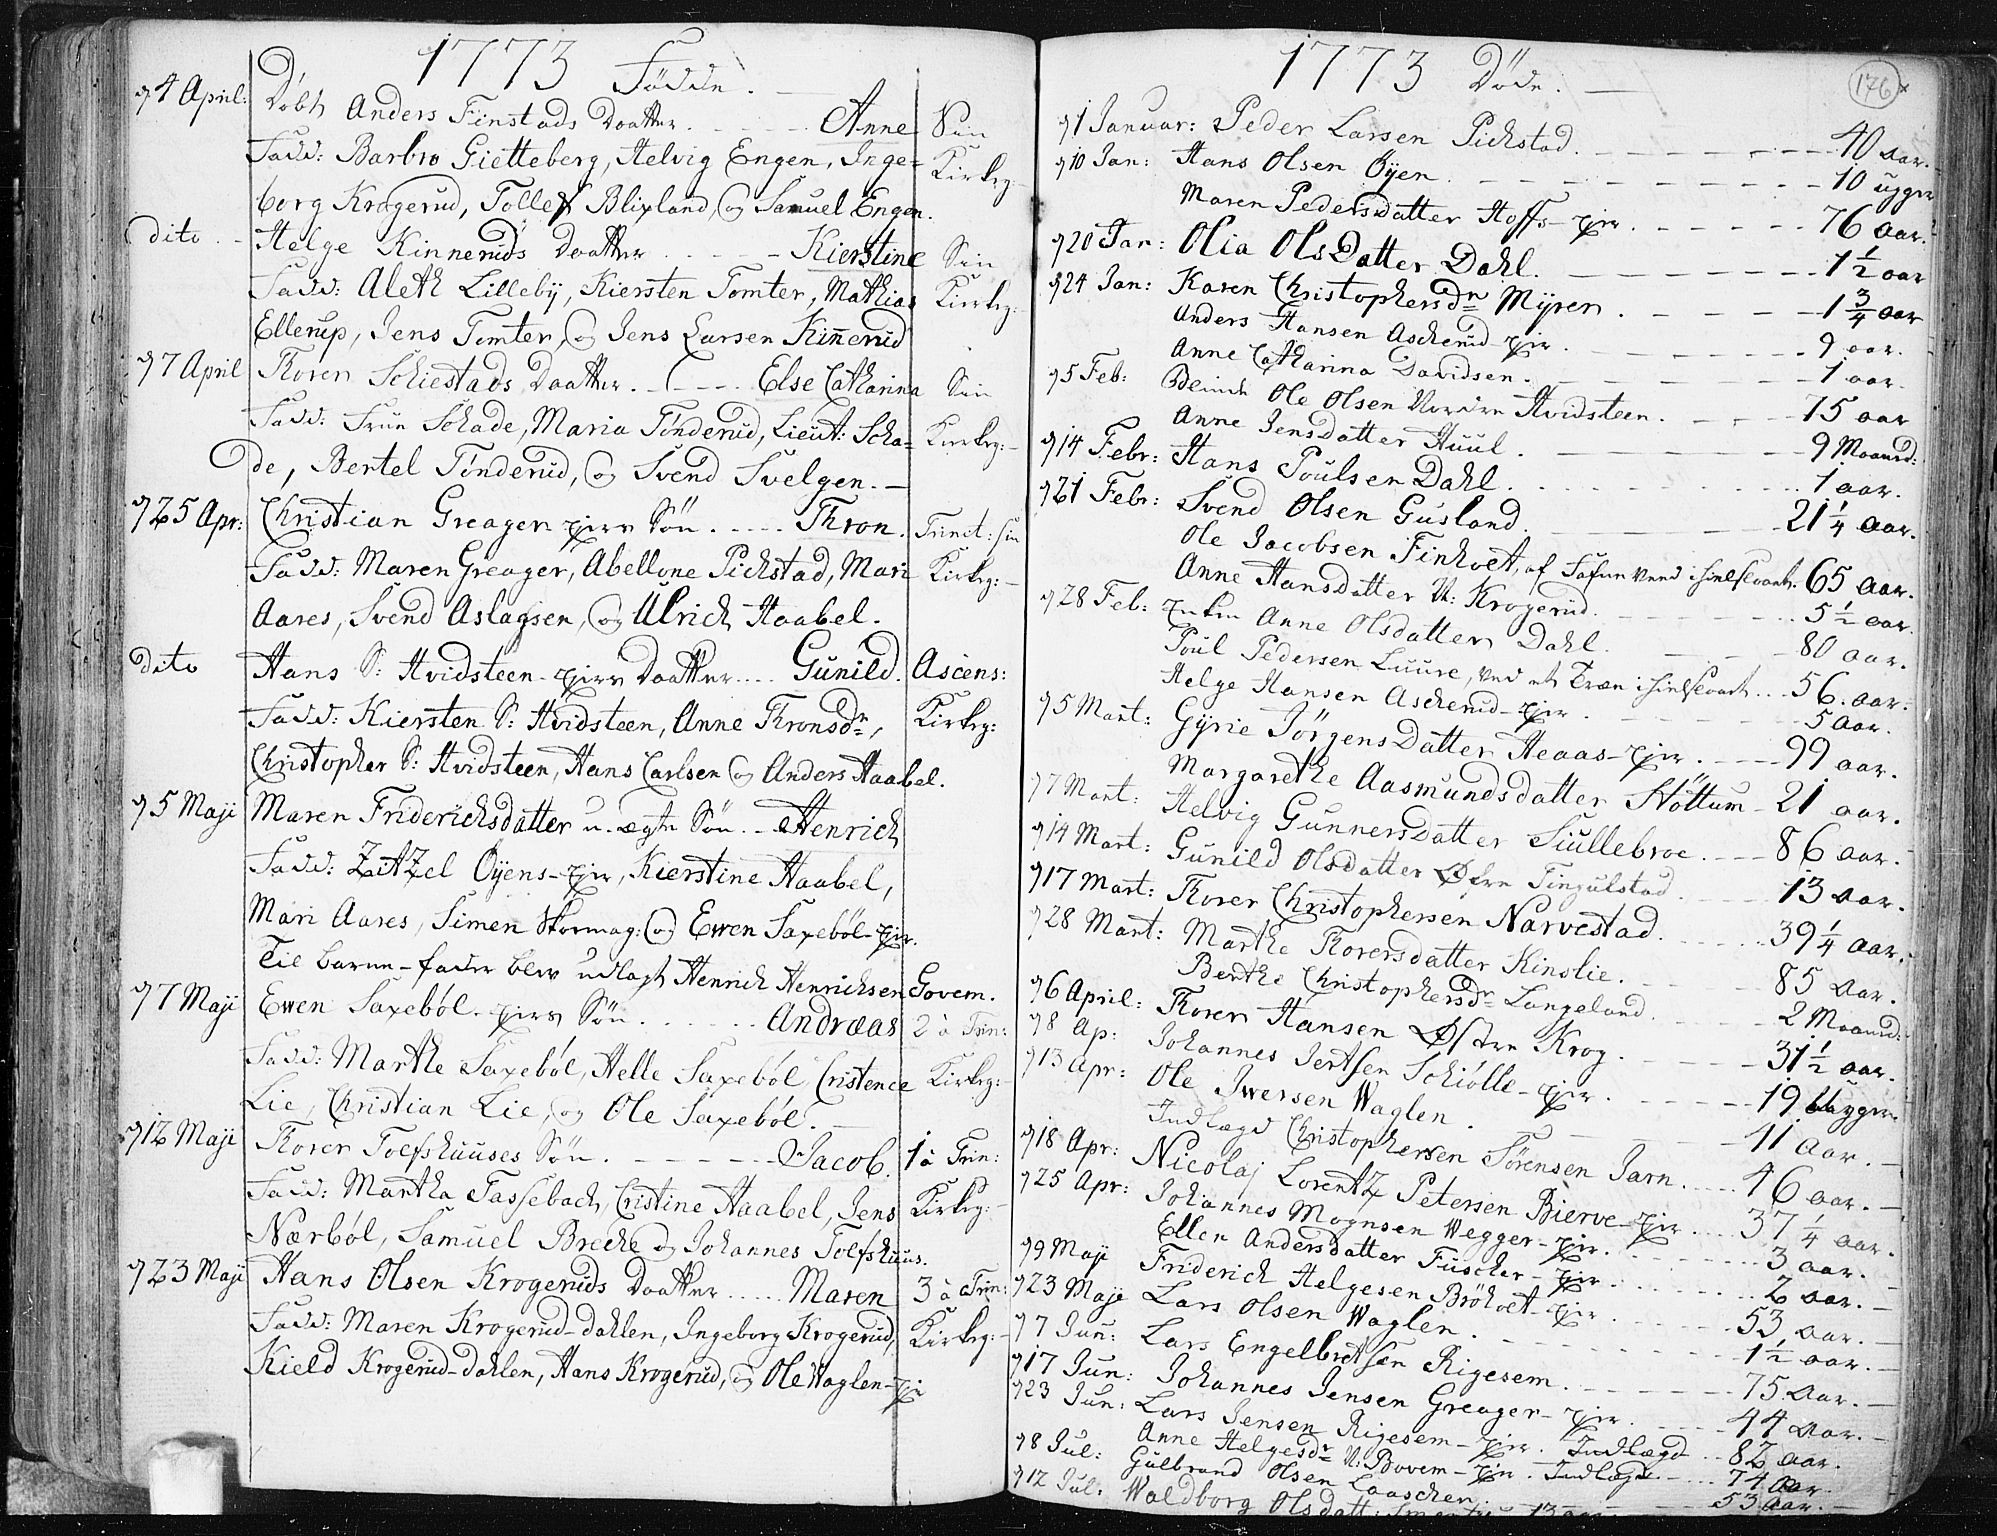 1773 Födde.
d 4 April: Döbt Anders Finstads Daatter. - - - Anne Sin
Fadd: Barbro Gietteberg, Helvig Engen, Inge- Kirkeg:
borg Krogerud, Tollef Blixland, og Samuel Engen.
dito - Helge Kinneruds Daatter - - - Kierstine Sin
Fadd: Aleth Lilleby, Kiersten Tomter, Mathias Kirkeg:
Ellerup, Jens Tomter, og Jens Larsen Kinnerud
d 7 April Thorer Schiestads Daatter. - - - Else Catharina Sin
Fadd: Frue Schade, Maria Tönderud, Lieut: Scha- Kirkeg:
de, Bertel Tönderud, og Svend Svelgen. -
d 25 Apr: Christian Greager-ejers Sön. - - - Thron. Trinct: Sin
Fadd: Maren Greager, Abellone Pichstad, Mari Kirkeg:
Aares, Svend Aslagsen, og Ulrich Haabel.
dito Hans S: Hvidsteen-ejers Daatter.... Gunild. Ascens:
Fadd: Kiersten S: Hvidsteen, Anne Thronsdr, Kirkeg:
Christopher S: Hvidsteen, Hans Carlsen og Anders Haabel.
d 5 Maji Maren Friderichsdatter u-ægte Sön. - Henrich
Fadd: Zitzel Öyens-ejer, Kierstine Haabel,
Mari Aares, Simen Skomag: og Ewen Saxeböl-ejer.
Til barne-fader blev udlagt Henrich Henrichsen Govem.
d 7 Maji Ewen Saxeböl-ejers Sön. - - - Andræas 2 à Trin:
Fadd: Marthe Saxeböl, Helle Saxeböl, Cristence Kirkeg:
Lie, Christian Lie, og Ole Saxeböl.
d 12 Maji Thorer Toefshuuses Sön. - - - Jacob. 1 à Trin:
Fadd: Martha Tassebach, Cristine Haabel, Jens Kirkeg:
Nærböl, Samuel Breche og Johannes Toefshuus.
d 23 Maji Hans Olsen Krogeruds Daatter ..... Maren 3 à Trin:
Fadd: Maren Krogerud-dahlen, Ingeborg Krogerud, Kirkeg:
Kield Krogerud-dahlen, Hans Krogerud, og Ole Waglen-ejer
1773 Döde. - 176
d 1 Januar: Peder Larsen Pichstad. - - - 40 aar.
d 10 Jan: Hans Olsen Öyen. - - - 10 uger
Maren Pedersdatter Hoffs-ejer. - - - 76 aar.
d 20 Jan: Olia OlsDatter Dahl. - - - 1 1/2 aar
d 24 Jan: Karen Christophersdr Myren. - - - 1 3/4 aar
Anders Hansen Ascherud-ejer. - - - 9 aar.
Anne Catharina Davidsen. - - - 1 aar.
d 5 Feb: Ole Olsen Nordre Hvidsteen. - - - 75 aar
Anne Jensdatter Huul. - - - 9 Maaned:
d 14 Febr: Hans Poulsen Dahl. - - - 1 aar.
d 21 Febr: Svend Olsen Gusland. - - - 21 1/4 aar.
Ole Jacobsen Finholt, - - - 65 aar.
Anne Hansdatter N: Krogerud. - - - 5 1/2 aar.
d 28 Feb: Enken Anne Olsdatter Dahl. - - - 80 aar.
Poul Pedersen Luure, ved et Træe ihielslaaet... 56 aar.
Helge Hansen Ascherud-ejer. - - - 5 aar.
d 5 Mart: Gyrie JörgensDatter Heaas-ejer. - - - 99 aar.
Margarethe Aasmundsdatter Stöttum - 21 aar.
d 7 Mart: Helvig GunnersDatter Siullebroe. - - - 86 aar.
d 14 Mart: Gunild Olsdatter Öfre Tingulstad - - - 13 aar.
d 17 Mart: Thorer Christophersen Narvestad. - - - 39 1/4 aar.
d 28 Mart: Marthe Thorersdatter Kinslie. - - - 85 aar.
Berthe Christophersdr Langeland. - - - 2 Maaned:
d 6 April: Thorer Hansen Östre Krog. - - - 31 1/2 aar.
d 8 Ap: Johannes Jertsen Schiölle-ejer. - - - 19 Uger.
d 13 Apr: Ole Iwersen Waglen. - - - 11 aar.
Indlægd Christophersen Sörensen Jarn. - - - 46 aar.
d 18 Apr: Nicolaj Lorentz Petersen Bierve-ejer. - - - 37 1/4 aar.
d 25 Apr: Johannes Mognsen Wegger-ejer. - - - 3 aar.
Ellen Andersdatter Fuscher-ejer. - - - 2 aar.
d 9 Maji Friderich Helgesen Bröholt-ejer. - - - 53 aar.
d 23 Maji Lars Olsen Waglen. - - - 1 1/2 aar.
d 7 Jun: Lars Engelbretsen Rigesem. - - - 75 aar.
d 17 Jun: Johannes Jensen Greager-ejer. - - - 44 aar.
d 23 Jun: Lars Jensen Rigesem-ejer. Indlægd - - - 82 aar.
Anne Helgesdr N: Bovem-ejer. Indlagd - - - 74 aar.
d 8 Jul: Gulbrand Olsen Laaschen. - - - 53 aar.
d 12 Jul: Waldborg Olsdatt: